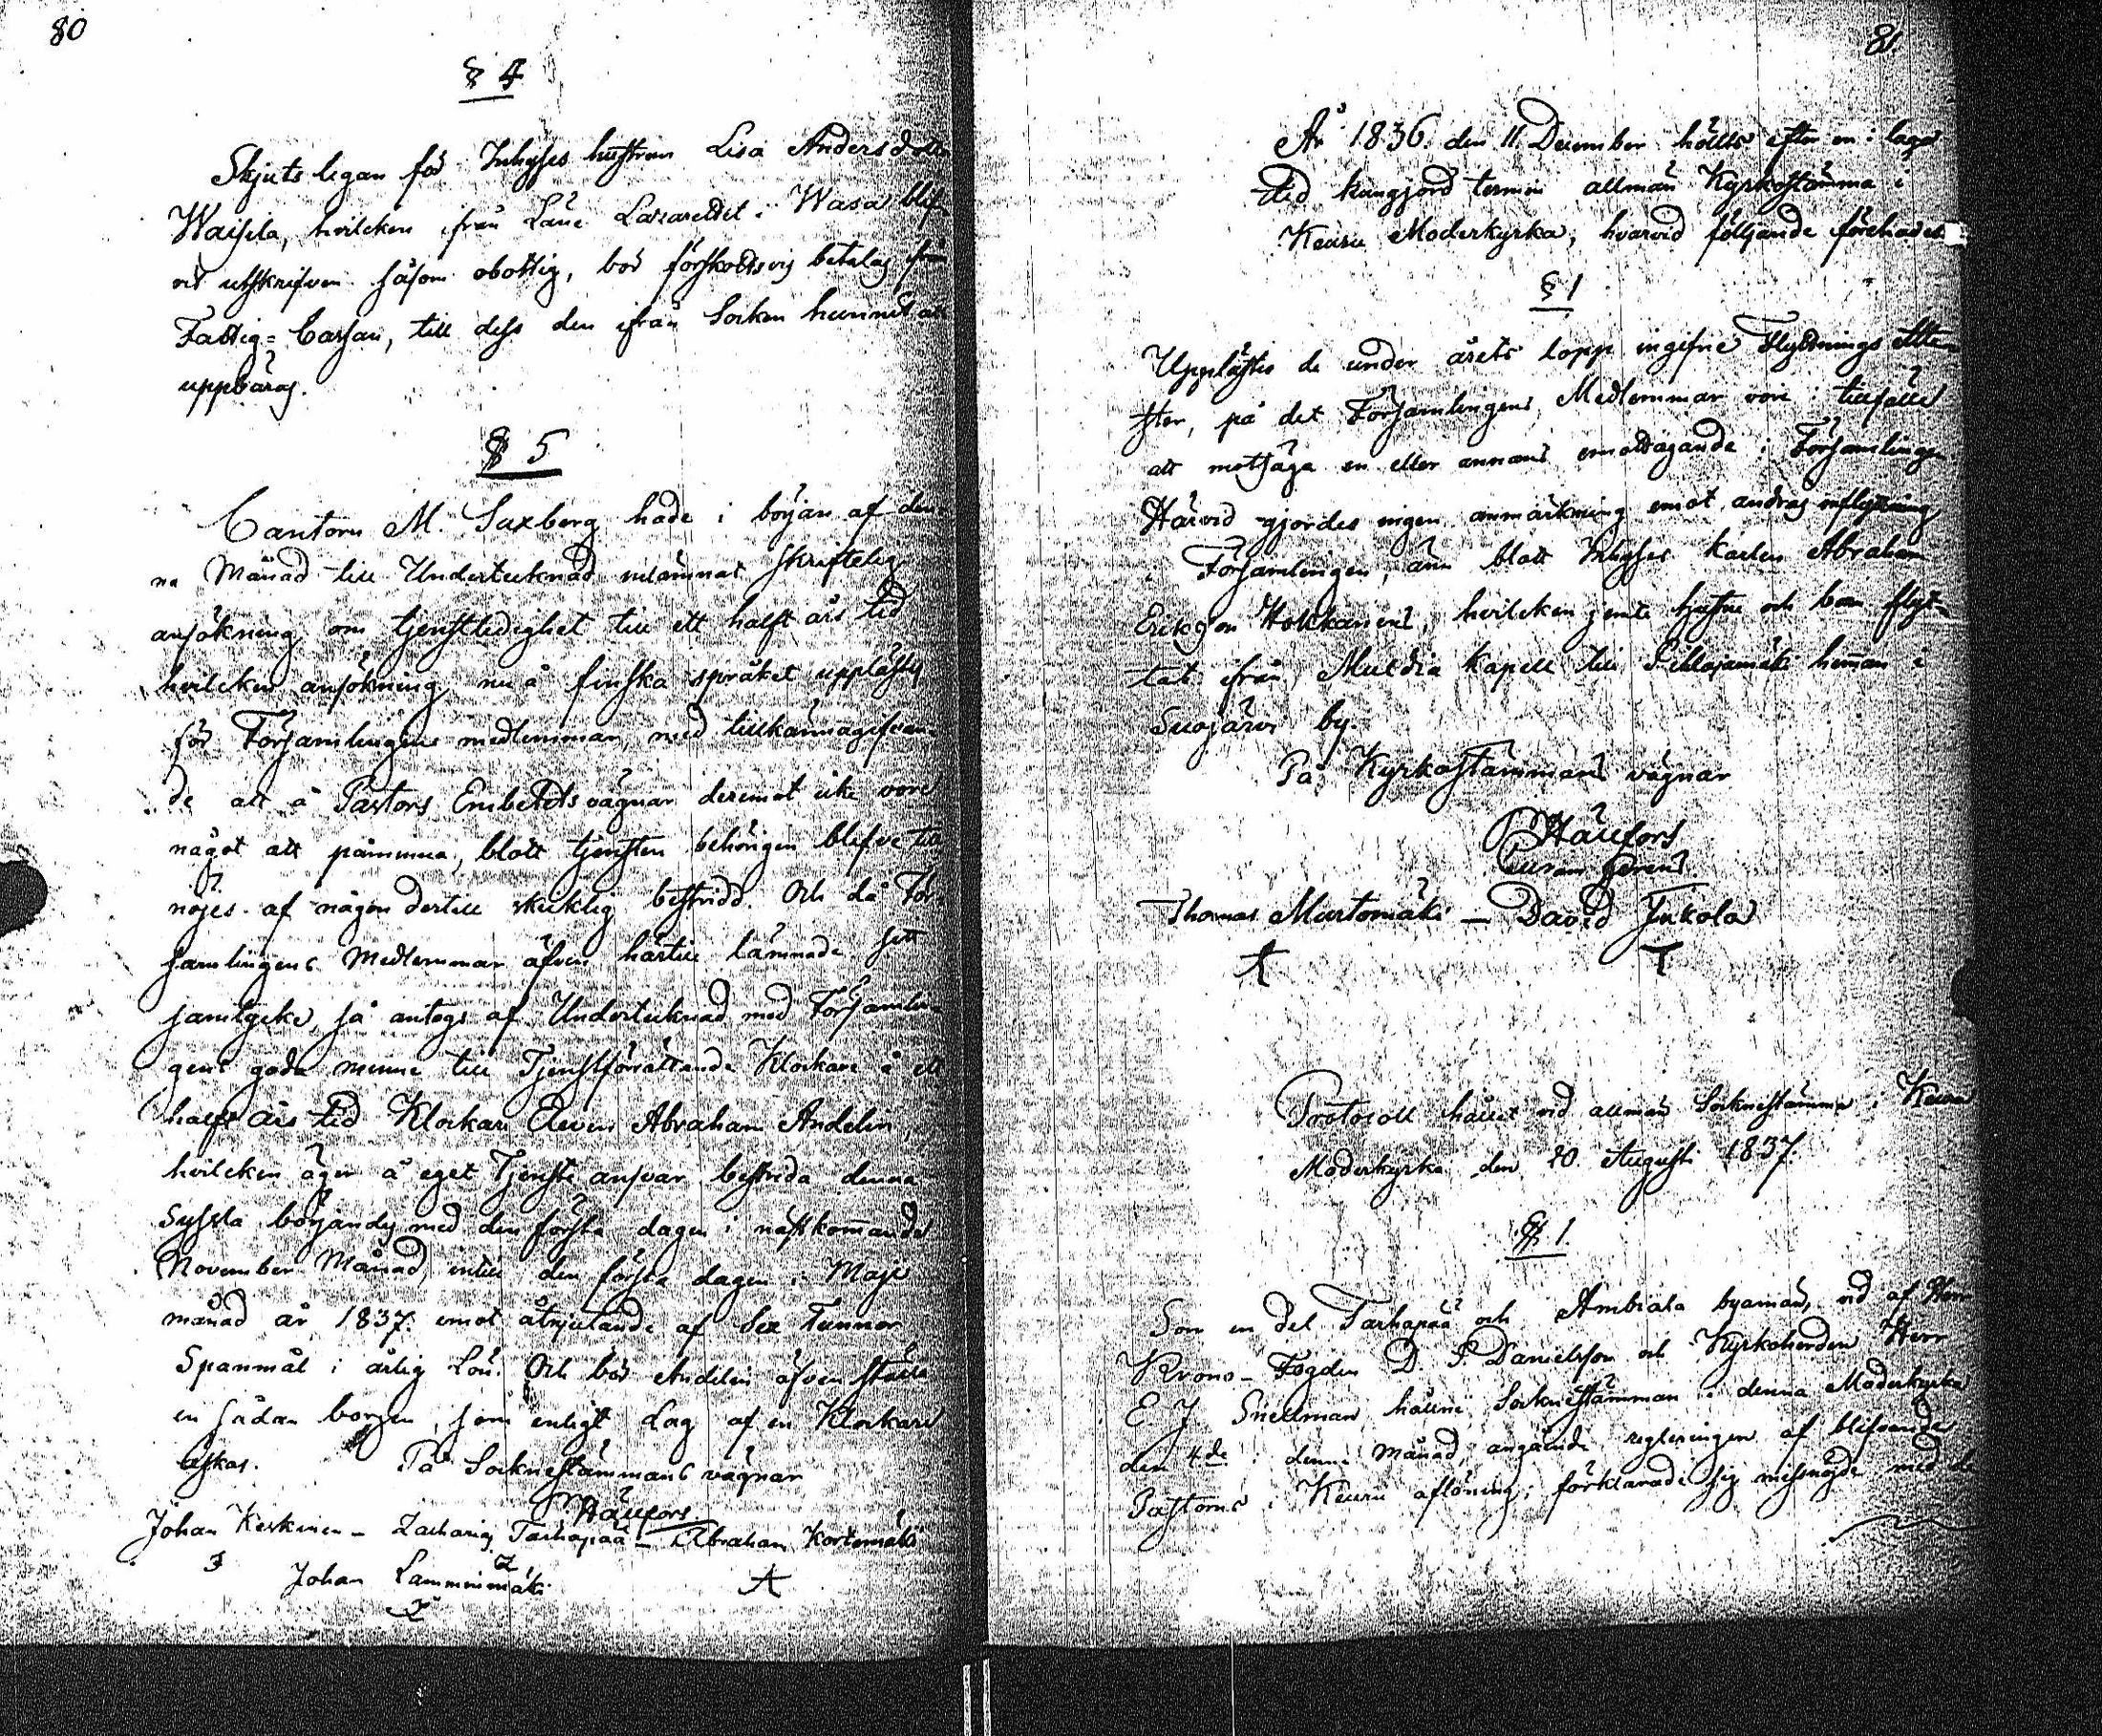 80
§ 4
Skjuts legan för Inhyses hustrun Lisa Andersdotter
Waissela, hvilcken ifrån Läne Lazarettet i Wasa blif-
vit utskrifven såsom obottlig, bör förskottsvis betalas från
Fattig=Cassan, till dess den ifrån Socken hunnit att
uppbäras.
§ 5
Cantorn M. Saxberg hade i början af den-
na Månad till Undertecknad inlämnat skriftelig
ansökning om tjenstledighet till ett halft års tid
hvilcken ansökning nu å finska språket upplästes
för Församlingens medlemmar, med tillkännagifvan-
de att å Pastors Embetets vägnar deremot icke vore
något att påminna, blott tjensten behörigen blefve till
nöjes af någon dertill skicklig bestridd. Och då För-
samlingens Medlemmar äfven härtill lämnade sitt
samtycke, så antogs af Undertecknad med Församlin-
gens goda minne till Tjenstförrättande Klockare å ett
halft års tid Klockare Eleven Abraham Andelin,
hvilcken äger å eget Tjenste ansvar bestrida denna
Syssla börjandes med den första dagen i nästkommande
November Månad, intill den första dagen i Maji
månad år 1837. emot åtnjutande af Sex Tunnor
Spanmål i årlig Lön. Och bör Andelin äfven ställa
en sådan borgen, som enligt Lag af en Klockare
äskas. På Socknestämmans vägnar
Hällfors
Johan Keskinen – Zacharias Tarhapää – Abraham Kortemäki
Johan Lamminmäki
81.
År 1836. den 11 December hölts efter en i laga
tid kungjord termin allmän Kyrkostämma i
Keuru Moderkyrka, hvarvid följande förehades:
§ 1
Upplästes de under årets lopp ingifne Flyttnings atte-
ster, på det Församlingens Medlemmar vore i tillfälle
att motsäga en eller annans emottagande i Församlingen
Härvid gjordes ingen anmärkning emot andras inflyttning
i Församlingen, änn blott Inhyses karlen Abraham
Eriksson Hokkanens, hvilcken jemte hustru och barn flyt-
tat ifrån Multia Kapell till Pihlajamäki heman i
Suojärvi by.
På Kyrkostämmans vägnar
Hällfors
Curam gerens.
Thomas Murtomäki – David Jukola
Protocoll hållet vid allmän Socknestämma i Keuru
Moderkyrka den 20 Augusti 1837.
§ 1.
Som en del Tarhapää och Ambiala byamän, vid af Herr
Krono-Fogden D. P. Danielsson och Kyrkoherden Herr
E J Snellman hållne Socknestämman i denna Moderkyrka
den 4de i denne Månad, angående regleringen af blifvande
Pastorns i Keuru aflöning, förklarade sig missnöjde med de